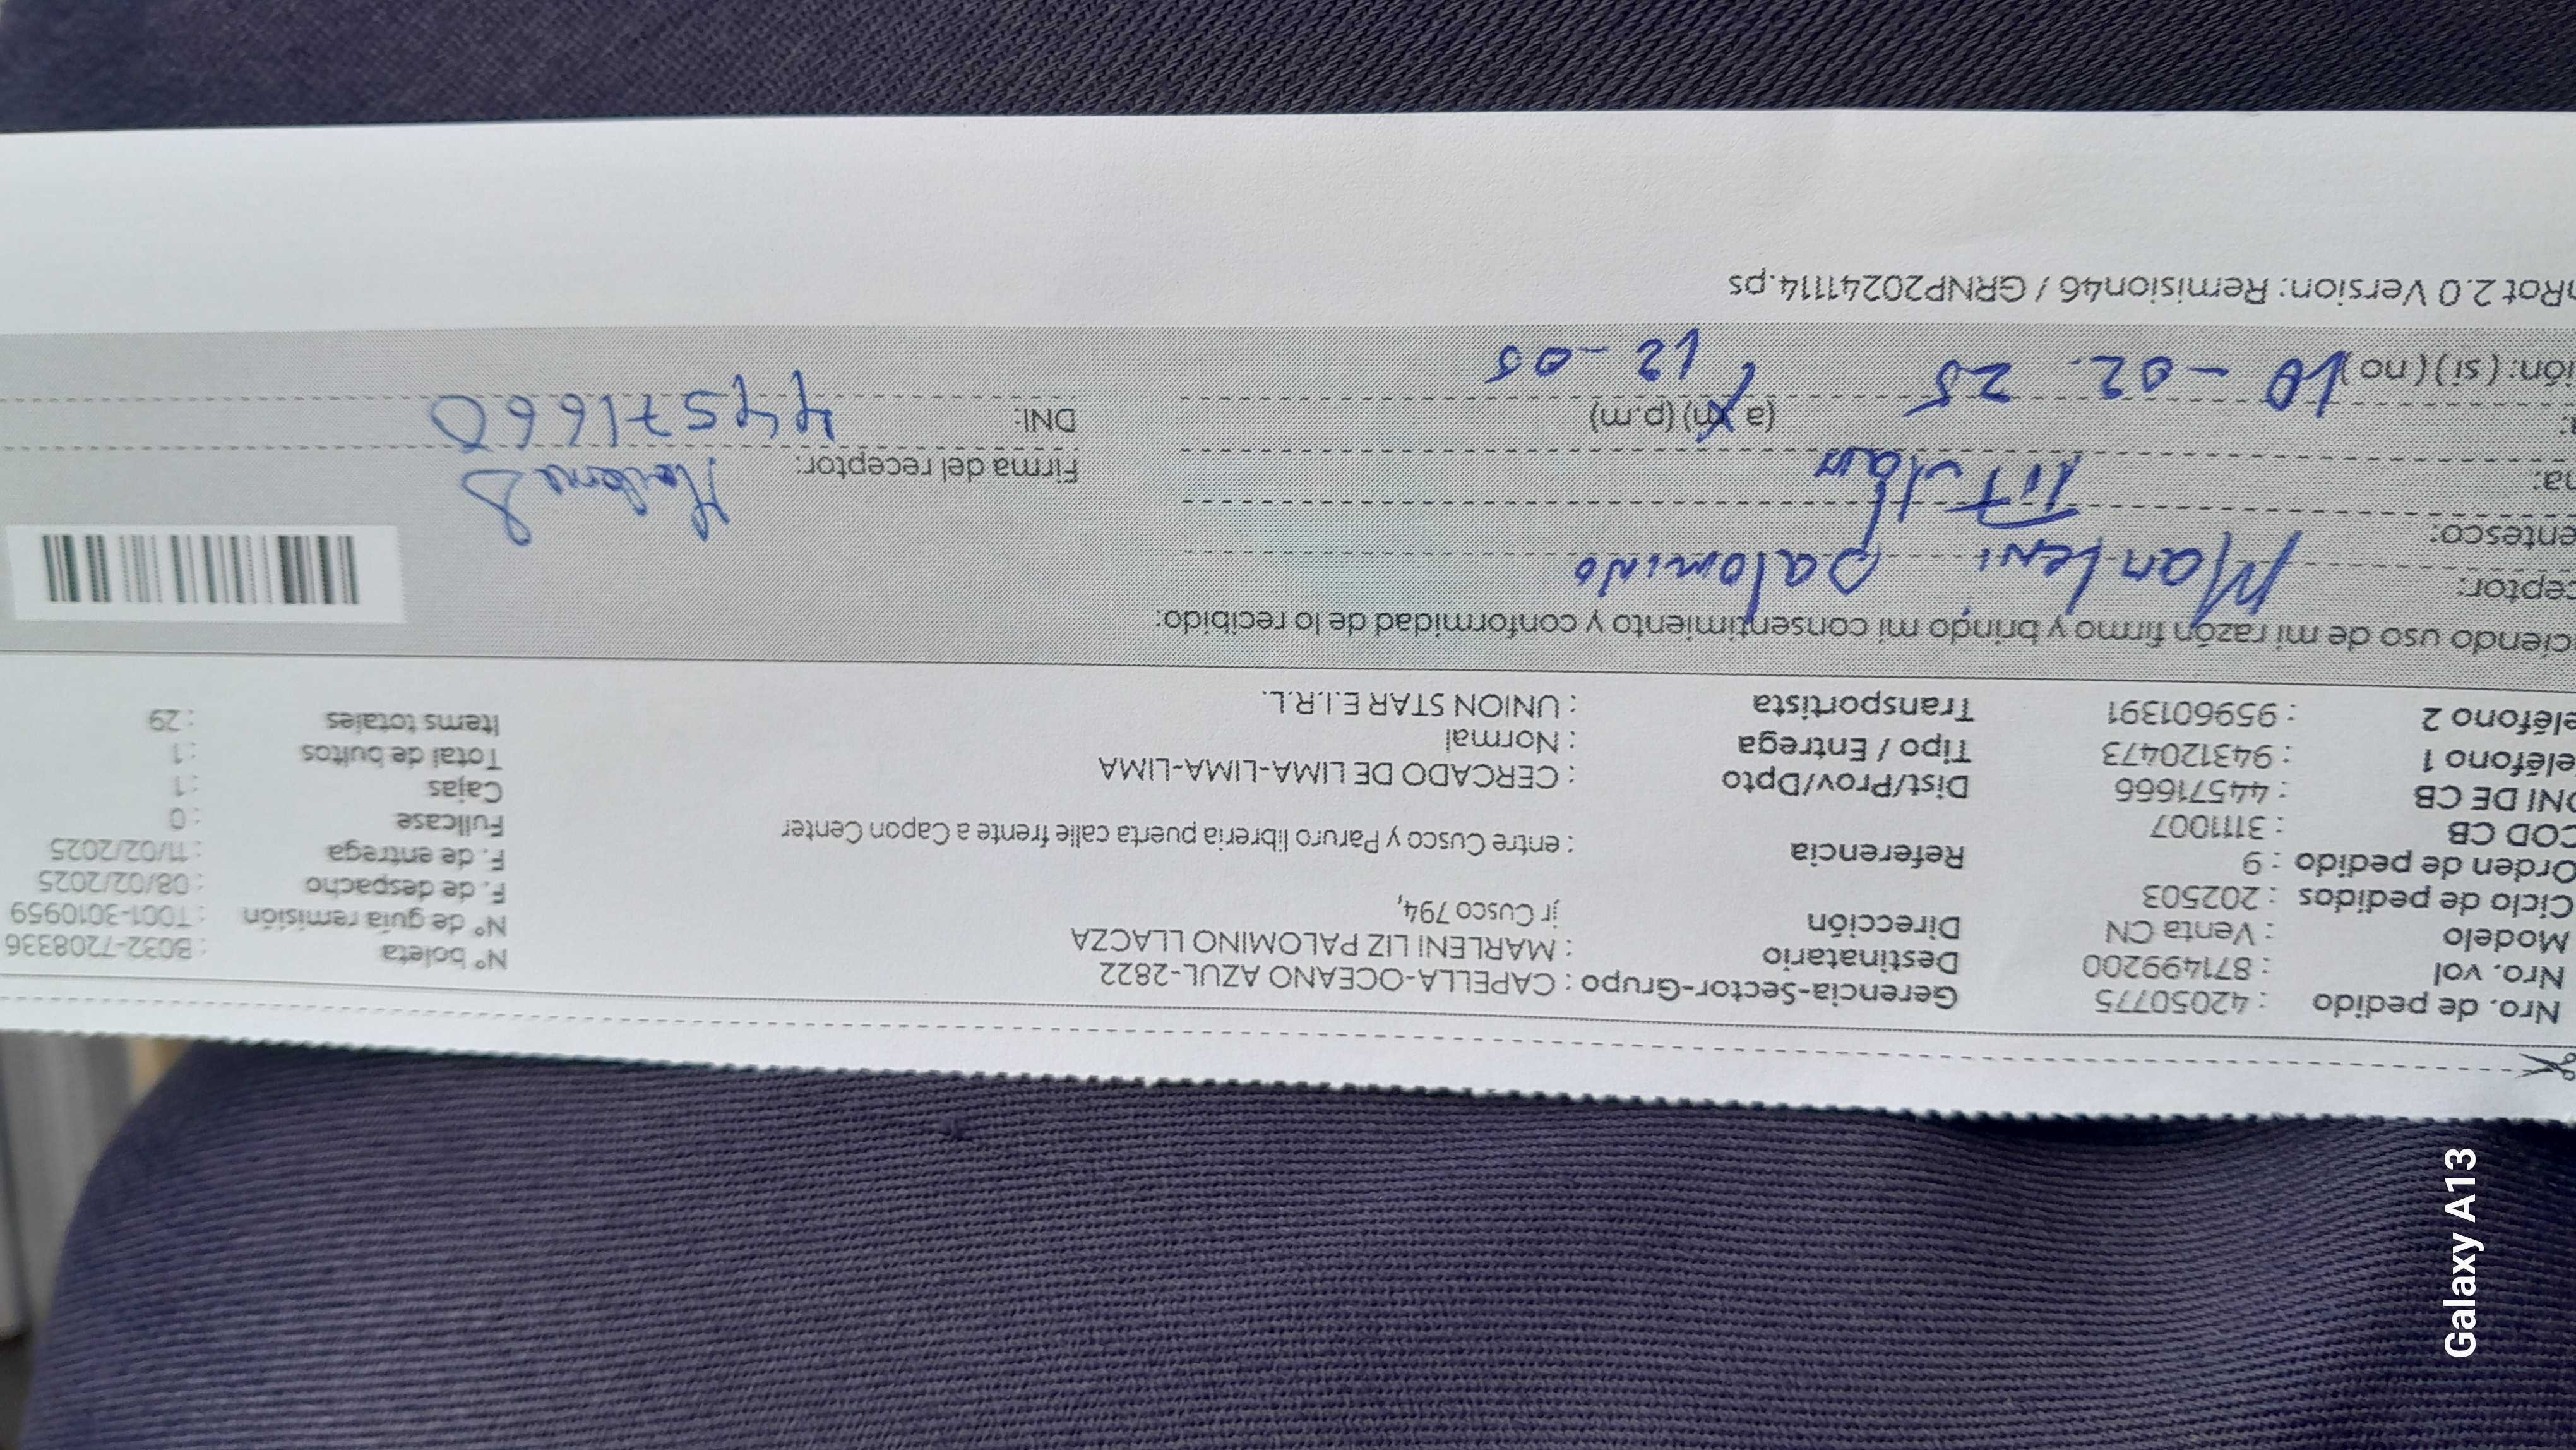 Nro. de pedido : 42050775 Gerencia-Sector-Grupo : CAPELLA-OCEANO AZUL-2822 N° boleta : B032-7208336
Nro. vol : 871499200 Destinatario : MARLENI LIZ PALOMINO LLACZA N° de guía remisión : T001-3010959
Modelo : Venta CN Dirección jr Cusco 794, F. de despacho : 08/02/2025
Ciclo de pedidos : 202503 F. de entrega : 11/02/2025
Orden de pedido : 9 Referencia : entre Cusco y Paruro libreria puerta calle frente a Capon Center Fullcase : 0
COD CB : 3111007 Cajas : 1
DNI DE CB : 44571666 Dist/Prov/Dpto : CERCADO DE LIMA-LIMA-LIMA Total de bultos : 1
eléfono 1 : 943120473 Tipo / Entrega : Normal Items totales : 29
eléfono 2 : 959601391 Transportista : UNION STAR E.I.R.L.
ciendo uso de mi razón firmo y brindo mi consentimiento y conformidad de lo recibido:
ceptor: Marleni palomino
entesco: Titular Firma del receptor:
na: DNI: 44571660
a: (a.m) (p.m)
ión: (si) (no) 10-02. 25 12-05
nRot 2.0 Version: Remision46 / GRNP20241114.ps
Galaxy A13